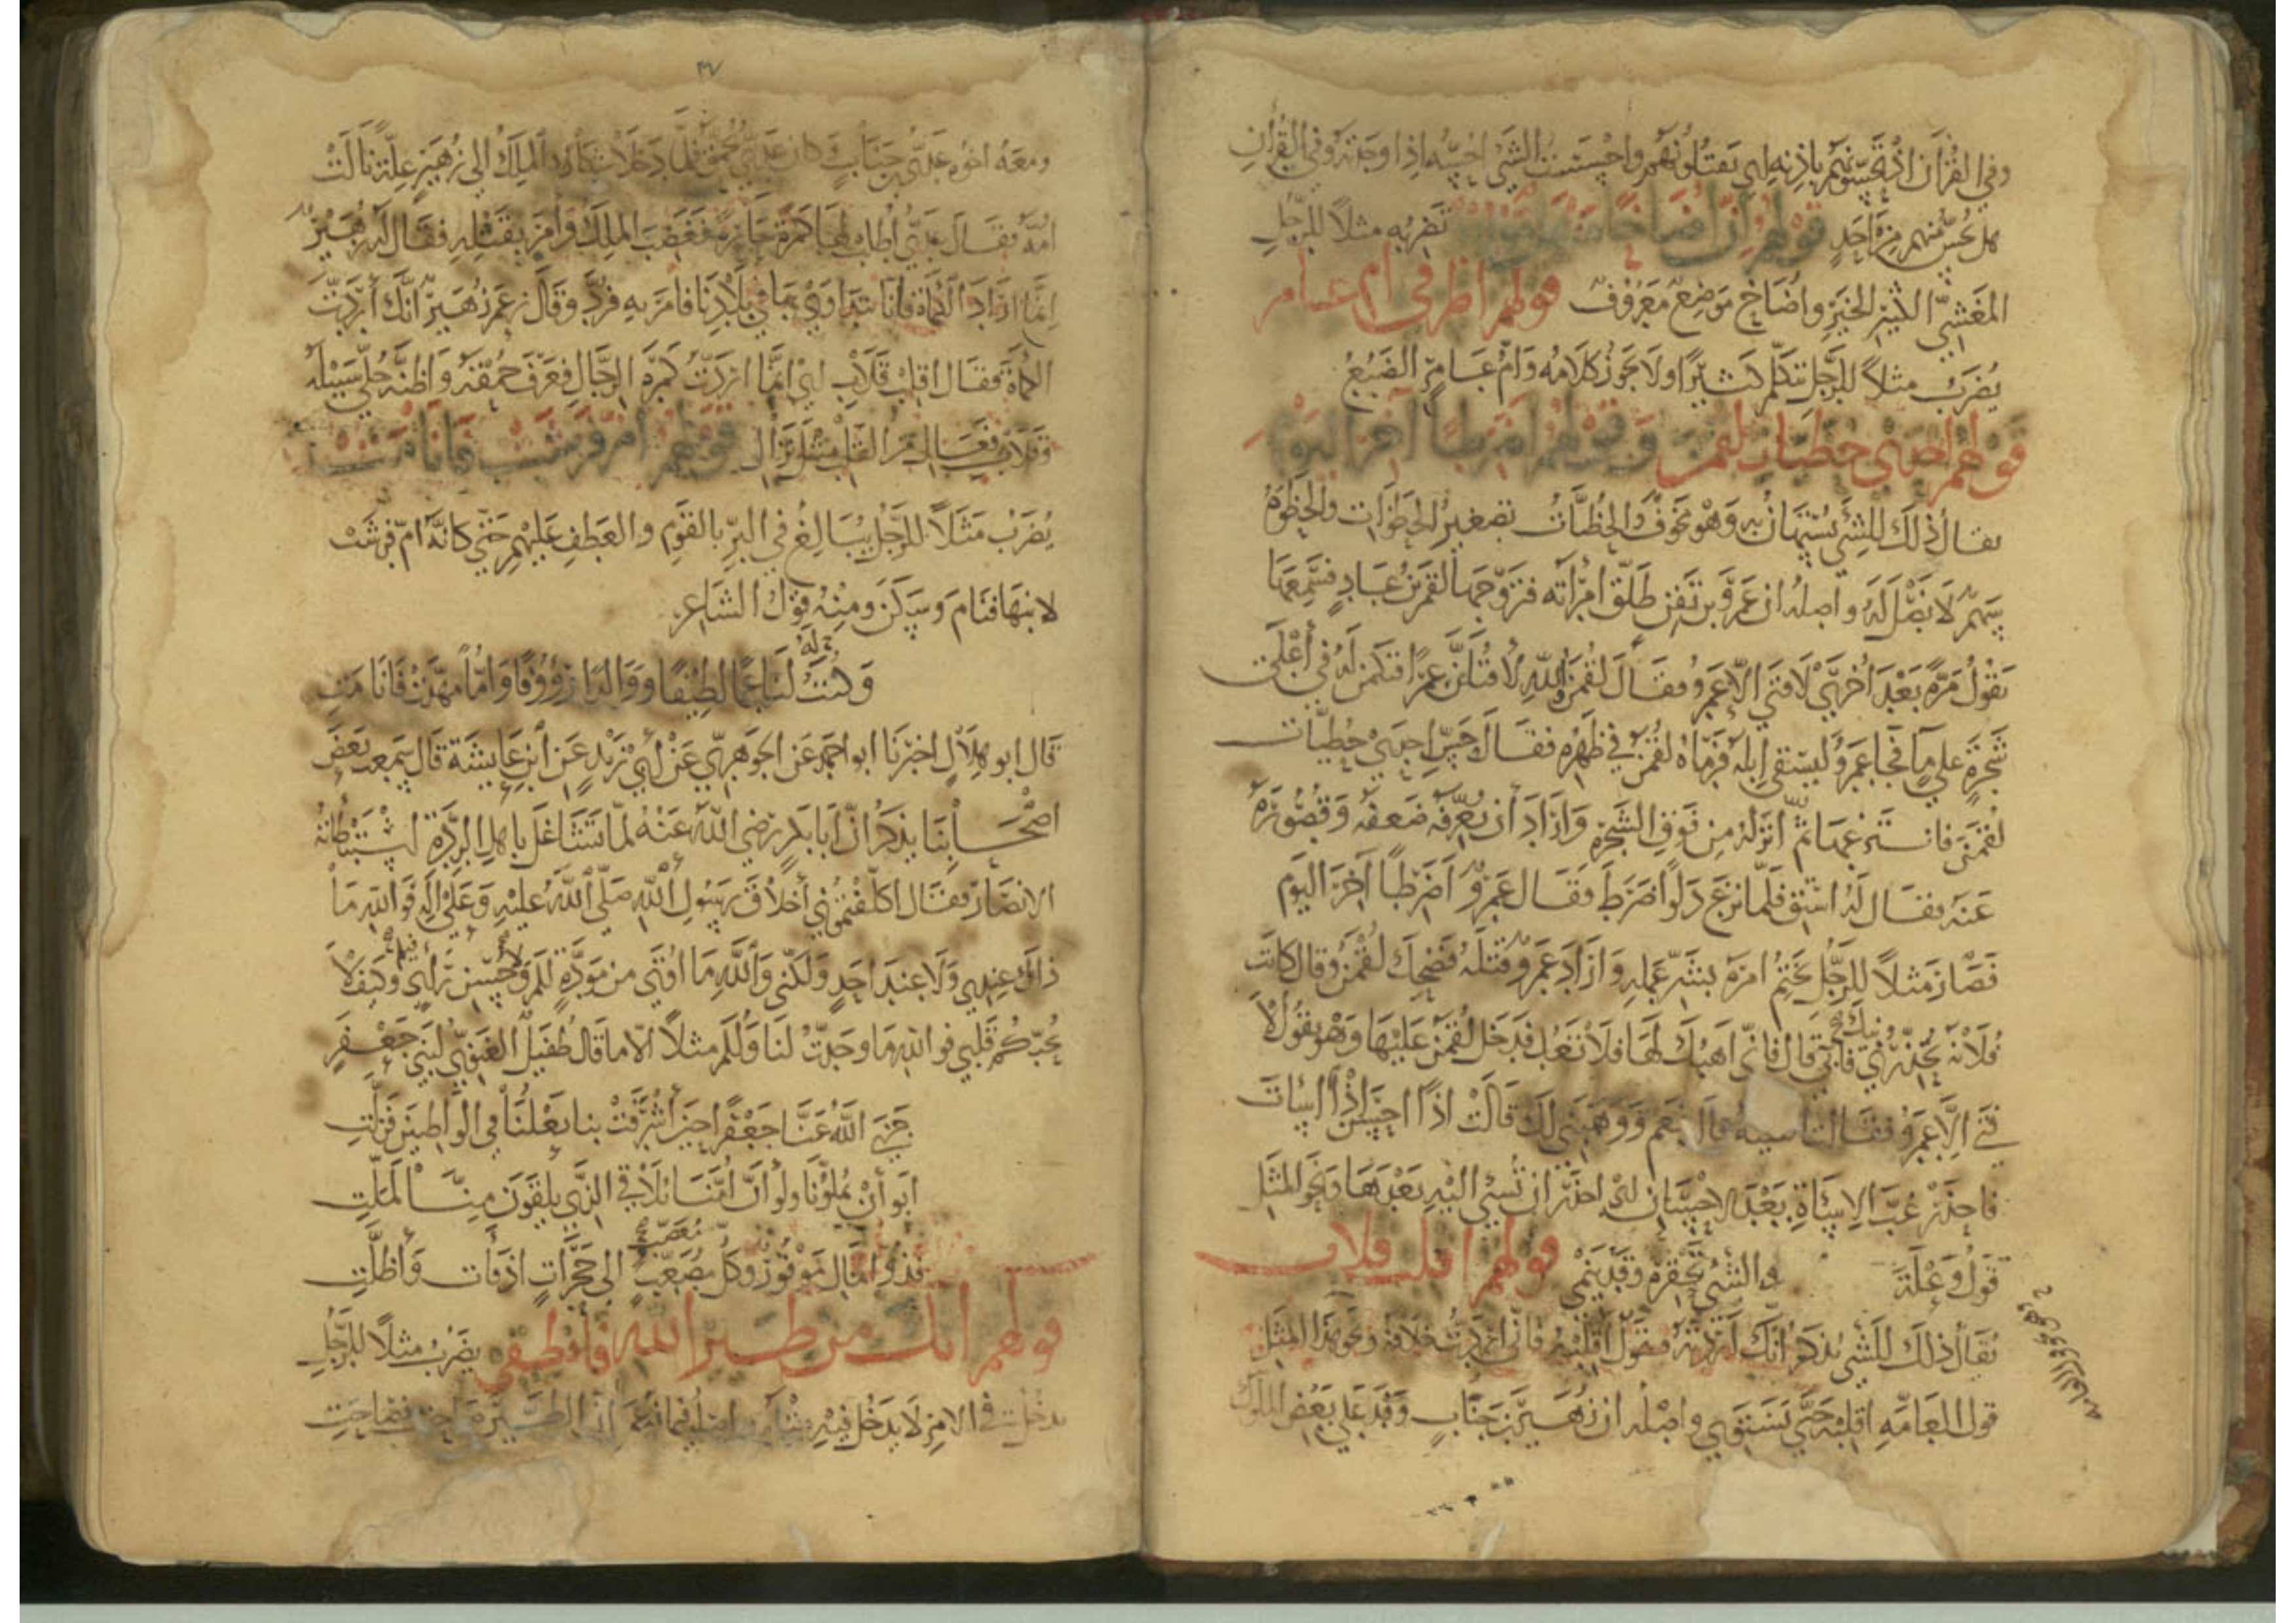 وفي القرآن اذ تحسونهم باذنه اي تقتلونهم واحسست الشي احسه اذا وجدته وفي القرآن
هل تحس منهم من احد قولهم ان اضاخا تضربه مثلا للرجل
المغشي الكثير الخير واضاخ موضع معروف قولهم اطرقي ام عامر
يضرب مثلا للرجل يتكلم كثيرا ولا يجوز كلامه وام عامر الضبع
قولهم احدى حظيات لقمن وقولهم اضرطا آخر اليوم
يقال ذلك للشي يستهان به وهو مخوف والحظيات تصغير الحظوات والحظوة
سهم لا نصل له واصله ان عمرو بن تقن طلق امرأته فتزوجها لقمن بن عاد فسمعها
تقول مرة بعد أخرى لا فتى الا عمرو فقال لقمن والله لأقتلن عمرا فكمن له في أعلى
شجرة على ما فجا عمرو ليسقي ابله فرماه لقمن في ظهره فقال حس احدى حظيات
لقمن فانتزعها ثم أنزله من فوق الشجرة وأراد أن يعرفه ضعفه وقصوره
عنه فقال له استق فلما نزع دلوا ضرط فقال عمرو أضرطا آخر اليوم
فصار مثلا للرجل يختم امره بشر عمله وأراد عمرو قتله فضحك لقمن وقال كانت
فلانة تحذرنيك فأبى قال فاني اهبك لها فلا تعد فدخل لقمن عليها وهو يقول لا
فتى الا عمرو فقالت ألقيته قال نعم ووهبني لك قالت اذا احسن اذ أسات
فاحذر غب الاساة بعد الاحسان اي احذر ان تسي اليه بعدها ونحو المثل
قول وعلة والشي تحقره وقد ينمي قولهم اقلب قلاب
يقال ذلك للشي يذكر انك أردته فتقول اقلبه فاني اردت خلافه ونحو هذا المثل
قول العامة اقلبه حتى يستوي واصله ان زهير بن جناب وفد على بعض الملوك
٣٧
ومعه اخوه عدي بن جناب كان عدي يحمق فلما دخلا شكا الملك الى زهير علة نالت
امه فقال عدي اطلب لها كمرة حارة فغضب الملك وأمر بقتله فقال له زهير
انما اراد الكماة فانا نتداوى بها في بلادنا فامر به فرد وقال زعم زهير انك أردت
الكماة فقال اقلب قلاب اي انما اردت كمرة الرجال فعرف حمقه وخلى سبيله
قولهم ام فرشت فانامت
يضرب مثلا للرجل يبالغ في البر بالقوم والعطف عليهم حتى كانه ام فرشت
لابنها فنام وسكن ومنه قول الشاعر
وكنت لنا عما لطيفا ووالدا رؤوفا وأما مهدت فانامت
قال ابو هلال اخبرنا ابو احمد عن الجوهري عن ابي زيد عن ابن عايشة قال سمعت بعض
اصحابنا يذكر ان ابا بكر رضي الله عنه لما تشاغل باهل الردة استبطأته
الانصار فقال أكلفتموني أخلاق رسول الله صلى الله عليه وعلى اله فوالله ما
ذاك عندي ولا عند احد ولكني والله ما اوتى من مودة لكم ولا حسن رأي فيكم وكيف لا
يحبكم قلبي فوالله ما وجدت لنا ولكم مثلا الا ما قال طفيل الغنوي لبني جعفر
جزى الله عنا جعفرا حين أشرفت بنا نعلنا في الواطيين فزلت
ابوا أن يملونا ولو أن أمنا تلاقي الذي يلقون منا لملت
فذوا المال موفور وكل معصب الى حجرات ادفأت وأظلت
قولهم انك من طير الله فانطقي يضرب مثلا للرجل
يدخل في الامر لا يدخل فيه مثله واصله فيما زعم ان الطير صاحت فصاحت